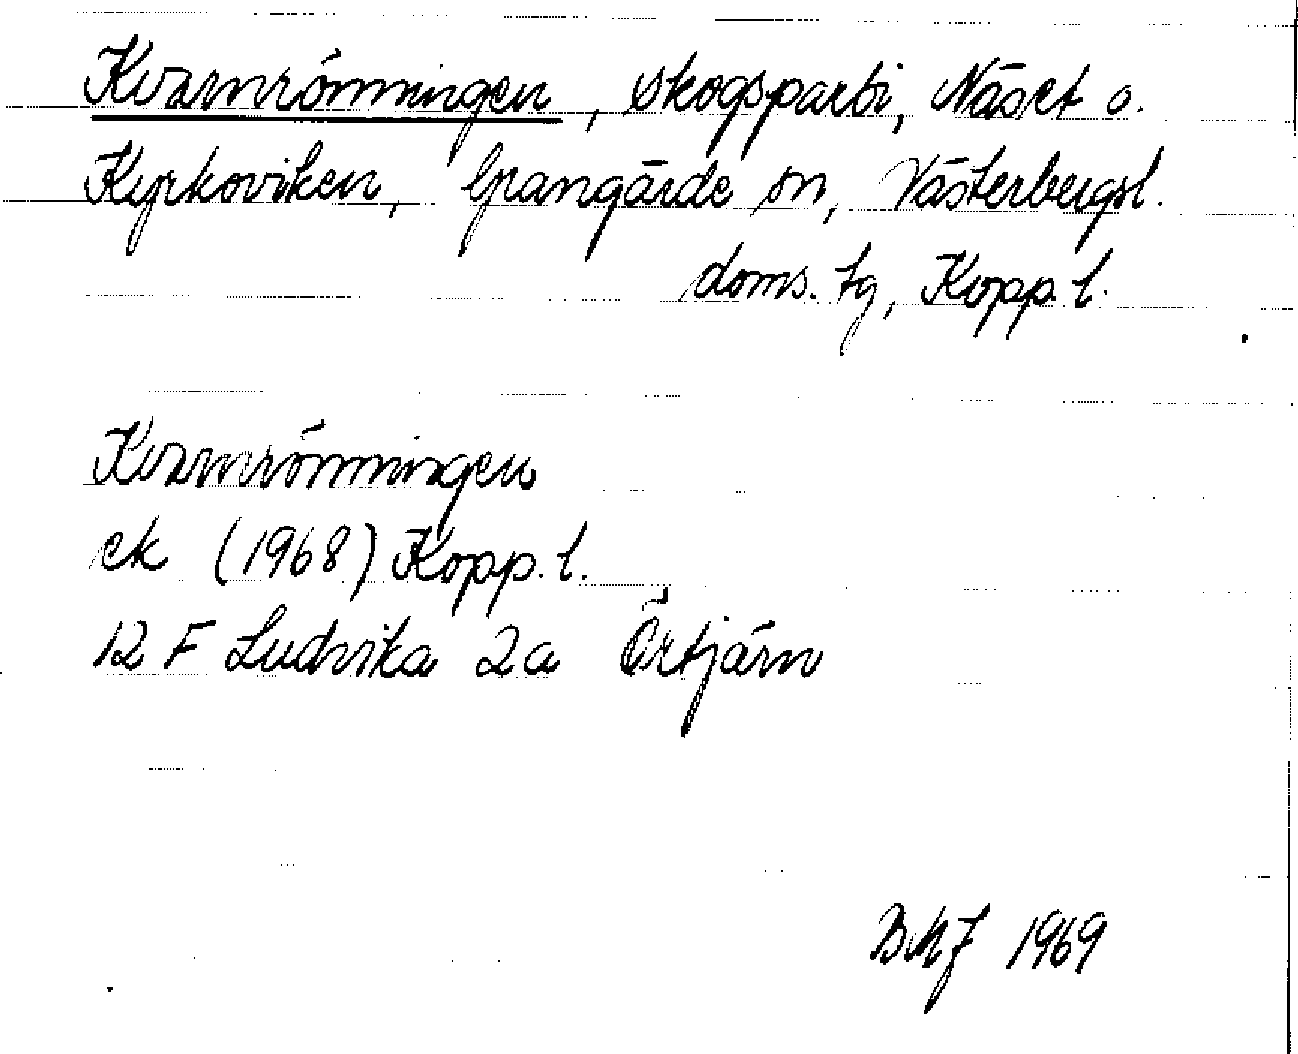 Kvarnrönningen, skogsparti, Näset o.
Kyrkoviken, Grangärde sn, Västerbergsl.
doms. tg, Kopp. l.
Kvarnrönningen
ek (1968) Kopp. l.
12 F Ludvika 2a Örtjärn
BMJ 1969